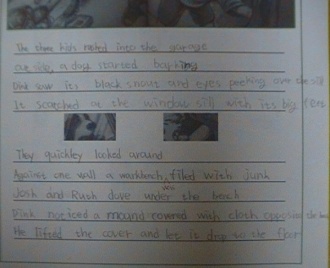 The three kids rushed into the garage
Outside, a dog started barking
Dink saw its black snout and eyes peeking over the sill
It scratched at the window sill with its big feet
They quickley looked around
Against one wall a workbench, filed with junk
Josh and Ruth dove under the bech
Dink noticed a mound covered with cloth opposite the
He lifted the cover and let it drop to the floor